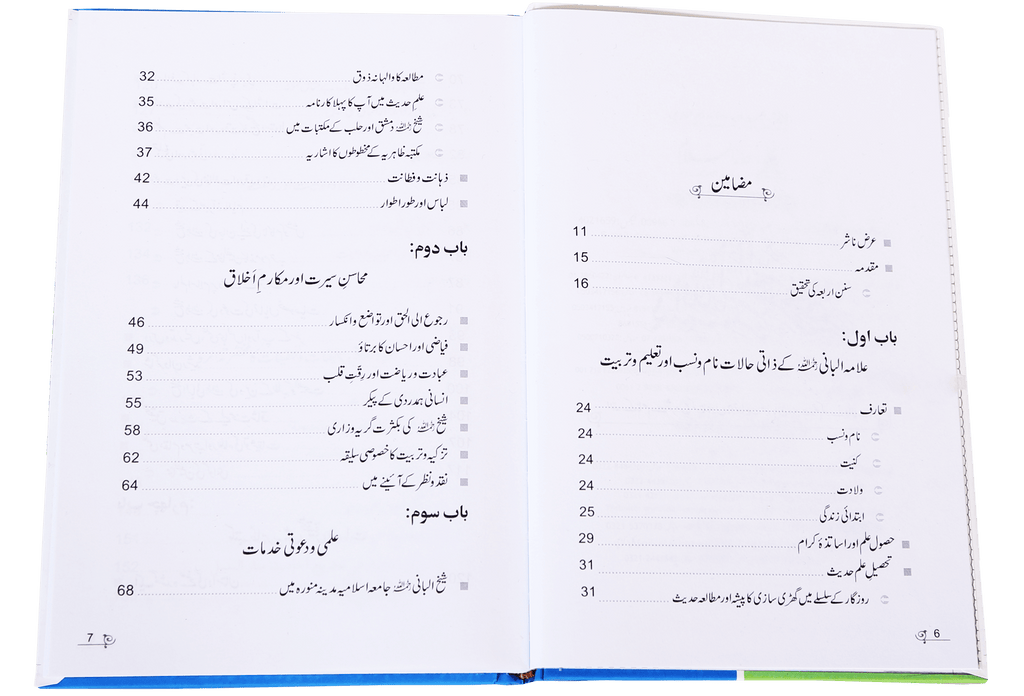 مضامین
عرض ناشر 11
مقدمہ 15
سنن اربعہ کی تحقیق 16
باب اول:
علامہ البانی رحمہ اللہ کے ذاتی حالات نام و نسب اور تعلیم و تربیت
تعارف 24
نام و نسب 24
کنیت 24
ولادت 24
ابتدائی زندگی 25
حصول علم اور اساتذۂ کرام 29
تحصیلِ علم حدیث 31
روزگار کے سلسلے میں گھڑی سازی کا پیشہ اور مطالعہ حدیث 31
6
مطالعہ کا والہانہ ذوق 32
علمِ حدیث میں آپ کا پہلا کارنامہ 35
شیخ رحمہ اللہ دمشق اور حلب کے مکتبات میں 36
مکتبہ ظاہریہ کے مخطوطوں کا اشاریہ 37
ذہانت و فطانت 42
لباس اور طور اطوار 44
باب دوم:
محاسنِ سیرت اور مکارمِ أخلاق
رجوع الی الحق اور تواضع و انکسار 46
فیاضی اور احسان کا برتاؤ 49
عبادت و ریاضت اور رِقّتِ قلب 53
انسانی ہمدردی کے پیکر 55
شیخ رحمہ اللہ کی بکثرت گریہ وزاری 58
تزکیہ و تربیت کا خصوصی سلیقہ 62
نقد و نظر کے آئینے میں 64
باب سوم:
علمی و دعوتی خدمات
شیخ البانی رحمہ اللہ جامعہ اسلامیہ مدینہ منورہ میں 68
7